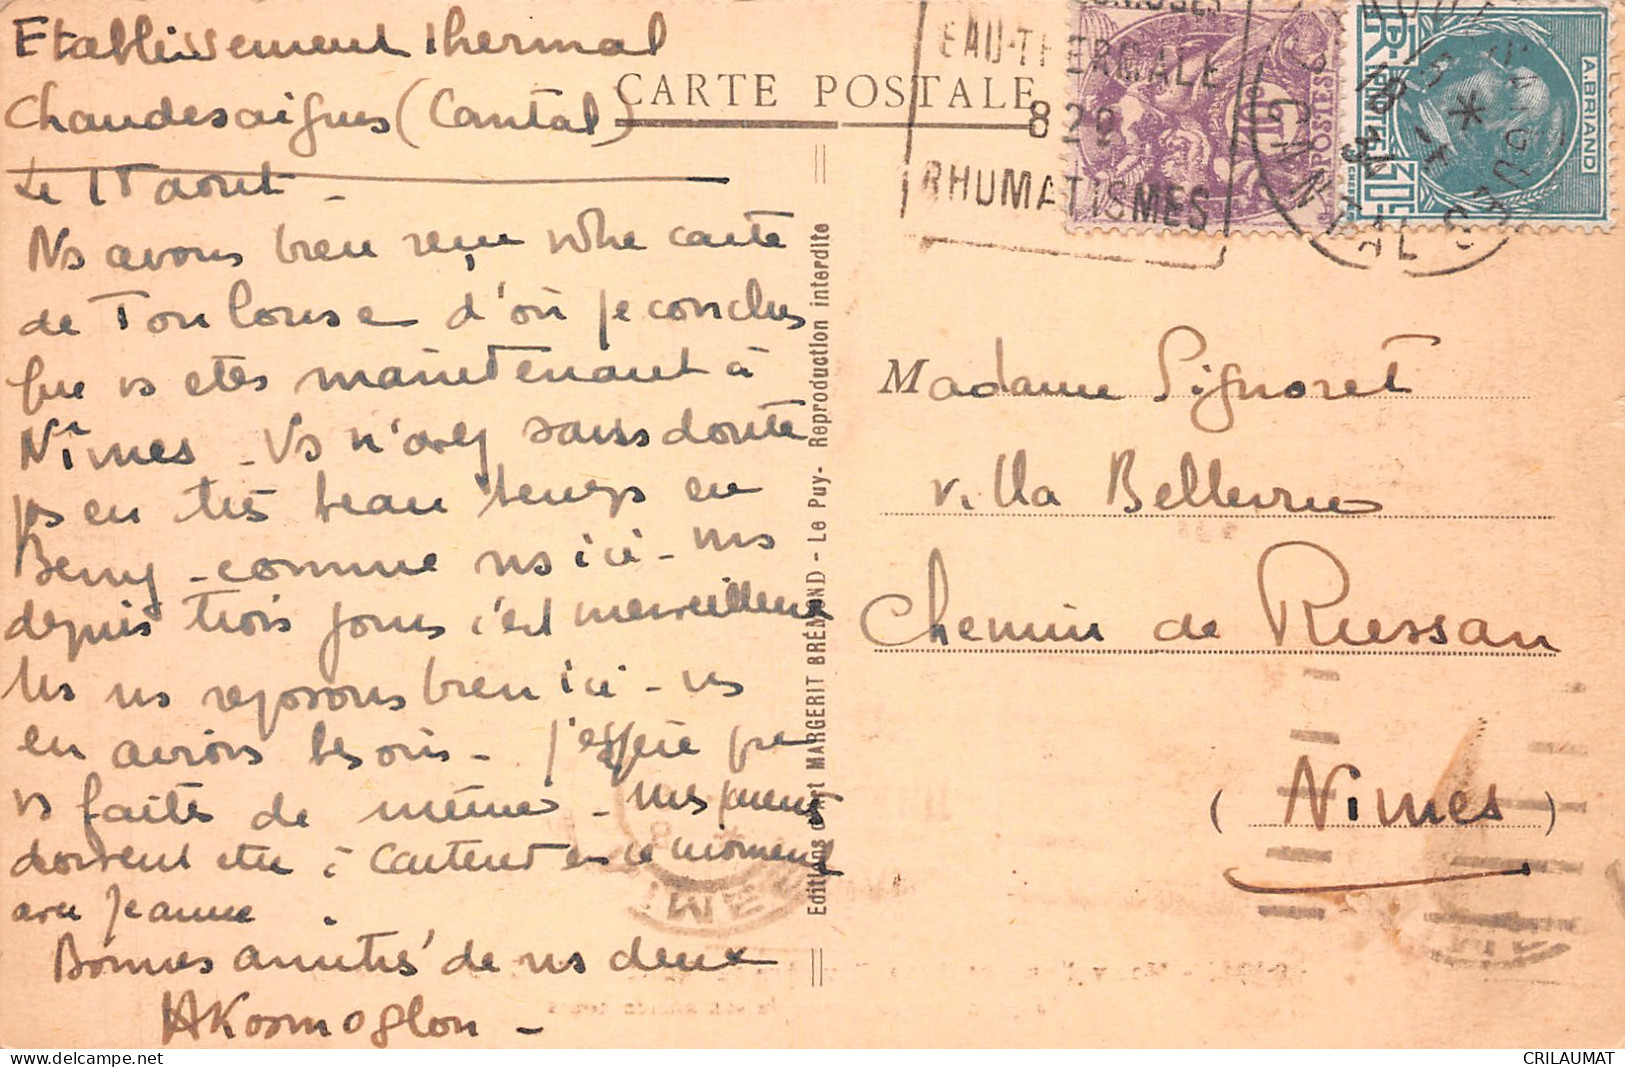 Etablissement thermal
Chaudesaigues (Cantal)
Le 18 aout -
Ns avons bien reçu votre carte
de Toulouse d'où je conclus
que vs etes maintenant à
Nîmes - Vs n'avez sans doute
pas eu très beau temps en
Berry - comme ns ici - mais
depuis trois jours c'est merveilleux
ns ns reposons bien ici - ns
en avions besoin - J'espère que
vs faites de même - mes
doivent etre à Cauterets en ce moment
avec Jeanne .
Bonnes amitiés de ns deux
AKosmoglou -
CARTE POSTALE
Editions d'Art MARGERIT BRÉMOND - Le Puy - Reproduction interdite
EAU-THERMALE
82º
RHUMATISMES
POSTES
A.BRIAND
POSTES
30c
CANTAL
Madame Signoret
Villa Bellevue
Chemin de Russan
(Nimes)
CRILAUMAT